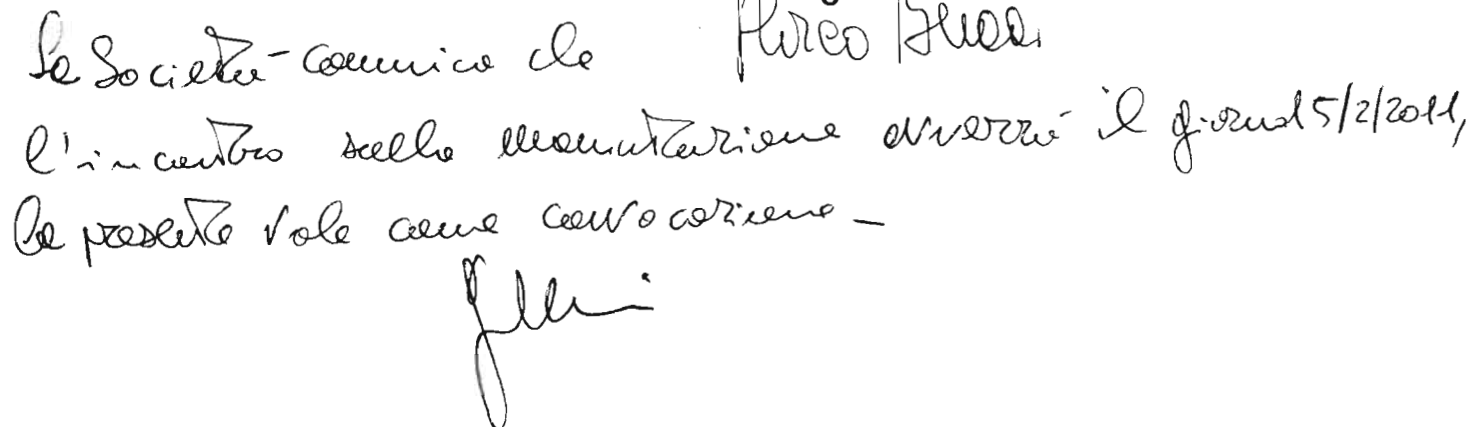 La Società comunica che
l'incontro sulla manutenzione avverrà il giorno 15/2/2011,
la presente vale come convocazione -